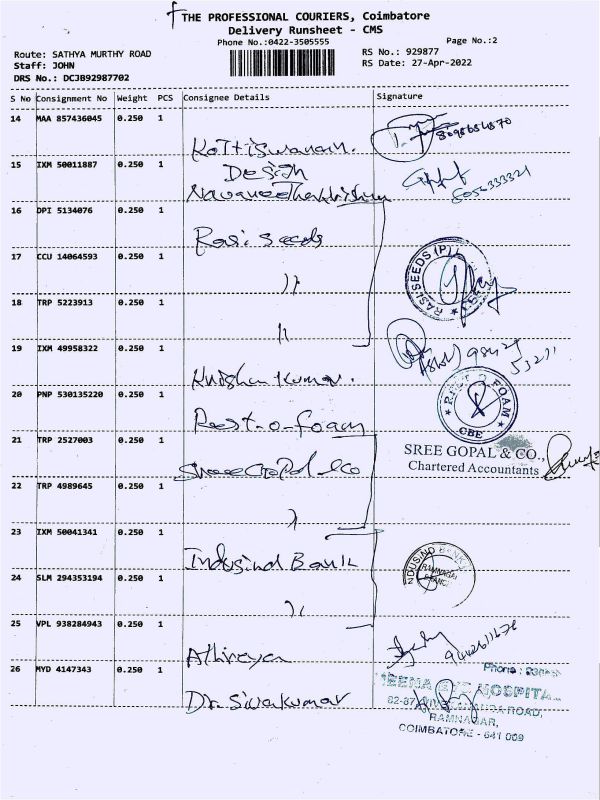 THE PROFESSIONAL COURIERS, Coimbatore
Delivery Runsheet - CMS
Phone No.:0422-3505555
Page No.:2
Route: SATHYA MURTHY ROAD
Staff: JOHN
DRS No.: DCJB92987702
RS No.: 929877
RS Date: 27-Apr-2022
S No Consignment No Weight PCS Consignee Details Signature
14 MAA 857436045 0.250 1
Design
15 IXM 50011887 0.250 1
Navaneethakrishnan
8056333321
16 DPI 5134076 0.250 1
Rasi Seeds
17 CCU 14064593 0.250 1
))
RASI SEEDS (P)
18 TRP 5223913 0.250 1
))
19 IXM 49958322 0.250 1
Krishna Kumar.
20 PNP 530135220 0.250 1
Rest-o-foam
REST O FOAM
CBE
21 TRP 2527003 0.250 1
Shree Gopal & Co
SREE GOPAL & CO.,
Chartered Accountants
22 TRP 4989645 0.250 1
)
23 IXM 50041341 0.250 1
Indusind Bank
INDUSIND BANK
RAMNAGAR
BRANCH
24 SLM 294353194 0.250 1
))
25 VPL 938284943 0.250 1
Athirayan
26 MYD 4147343 0.250 1
Dr. Sivakumar
Phone :
EYE HOSPITAL
ROAD,
RAMNAGAR,
COIMBATORE - 641 009